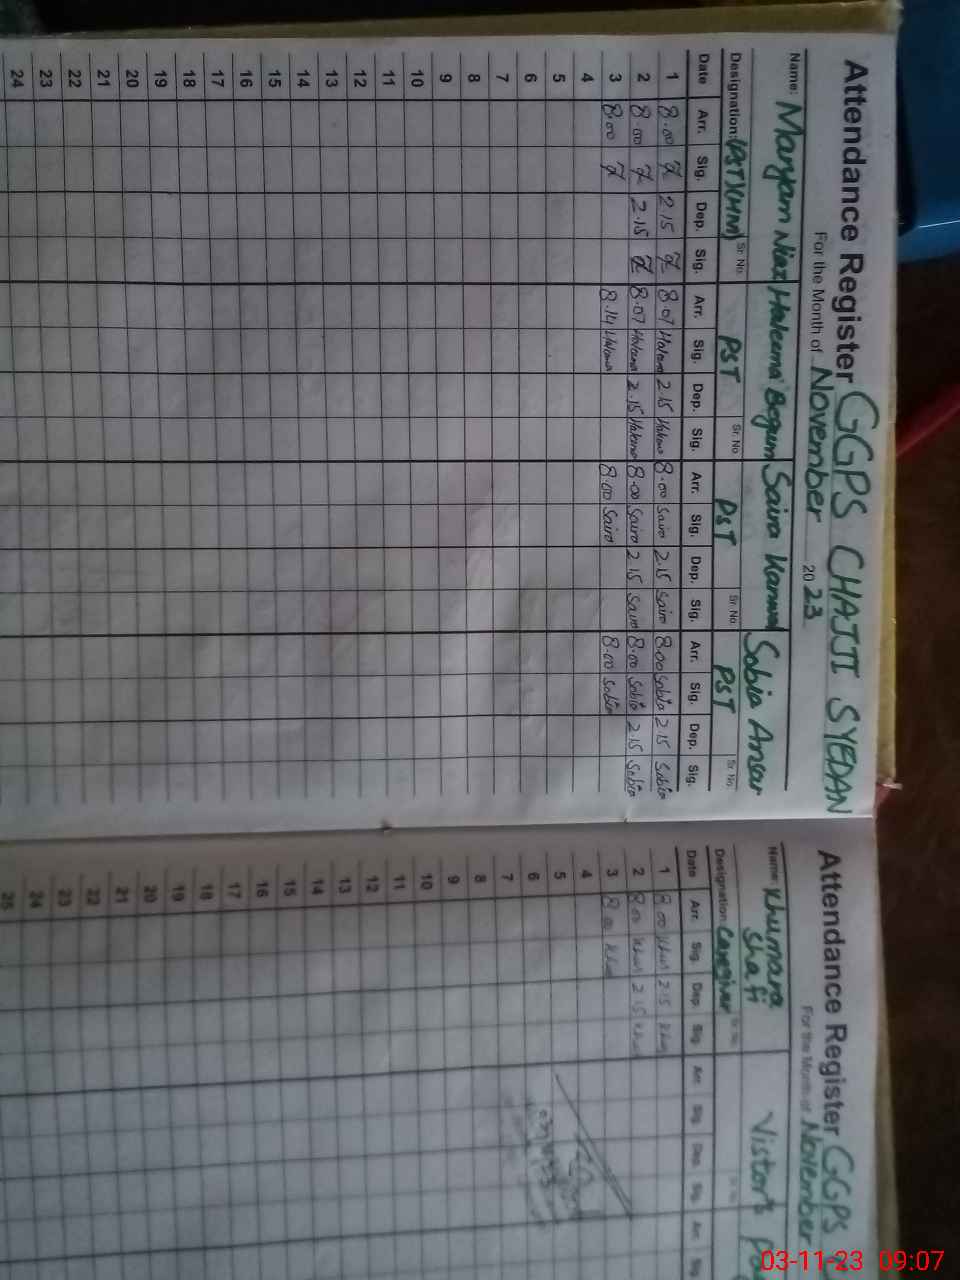 Attendance Register GGPS CHAJJI SYEDAN
For the Month of November 2023
Name: Maryam Niaz Hakuma Begum Saira Kanwal Sobia Ansar
Designation: (PST)(HM) Sr. No. PST Sr. No. PST Sr. No. PST Sr. No.
Date Arr. Sig. Dep. Sig. Arr. Sig. Dep. Sig. Arr. Sig. Dep. Sig. Arr. Sig. Dep. Sig.
1 8.00 2.15 8.07 2.15 8.00 Saira 2.15 Saira 8.00 Sobia 2.15 Sobia
2 8.00 2.15 8.07 2.15 8.00 Saira 2.15 Saira 8.00 Sobia 2.15 Sobia
3 8.00 8.14 8.00 Saira 8.00 Sobia
4
5
6
7
8
9
10
11
12
13
14
15
16
17
18
19
20
21
22
23
24
Attendance Register GGPS
For the Month of November
Name: Khumara Shafi Vistor's
Designation: Caregiver Sr. No.
Date Arr. Sig. Dep. Sig. Arr. Sig. Dep. Sig. Arr. Sig.
1 8.00 Khum 2.15 Khum
2 8.00 Khum 2.15 Khum
3 8.00 Khum
4
5
6
7
8
9
10
11
12
13
14
15
16
17
18
19
20
21
22
23
24
25
03-11-23 09:07